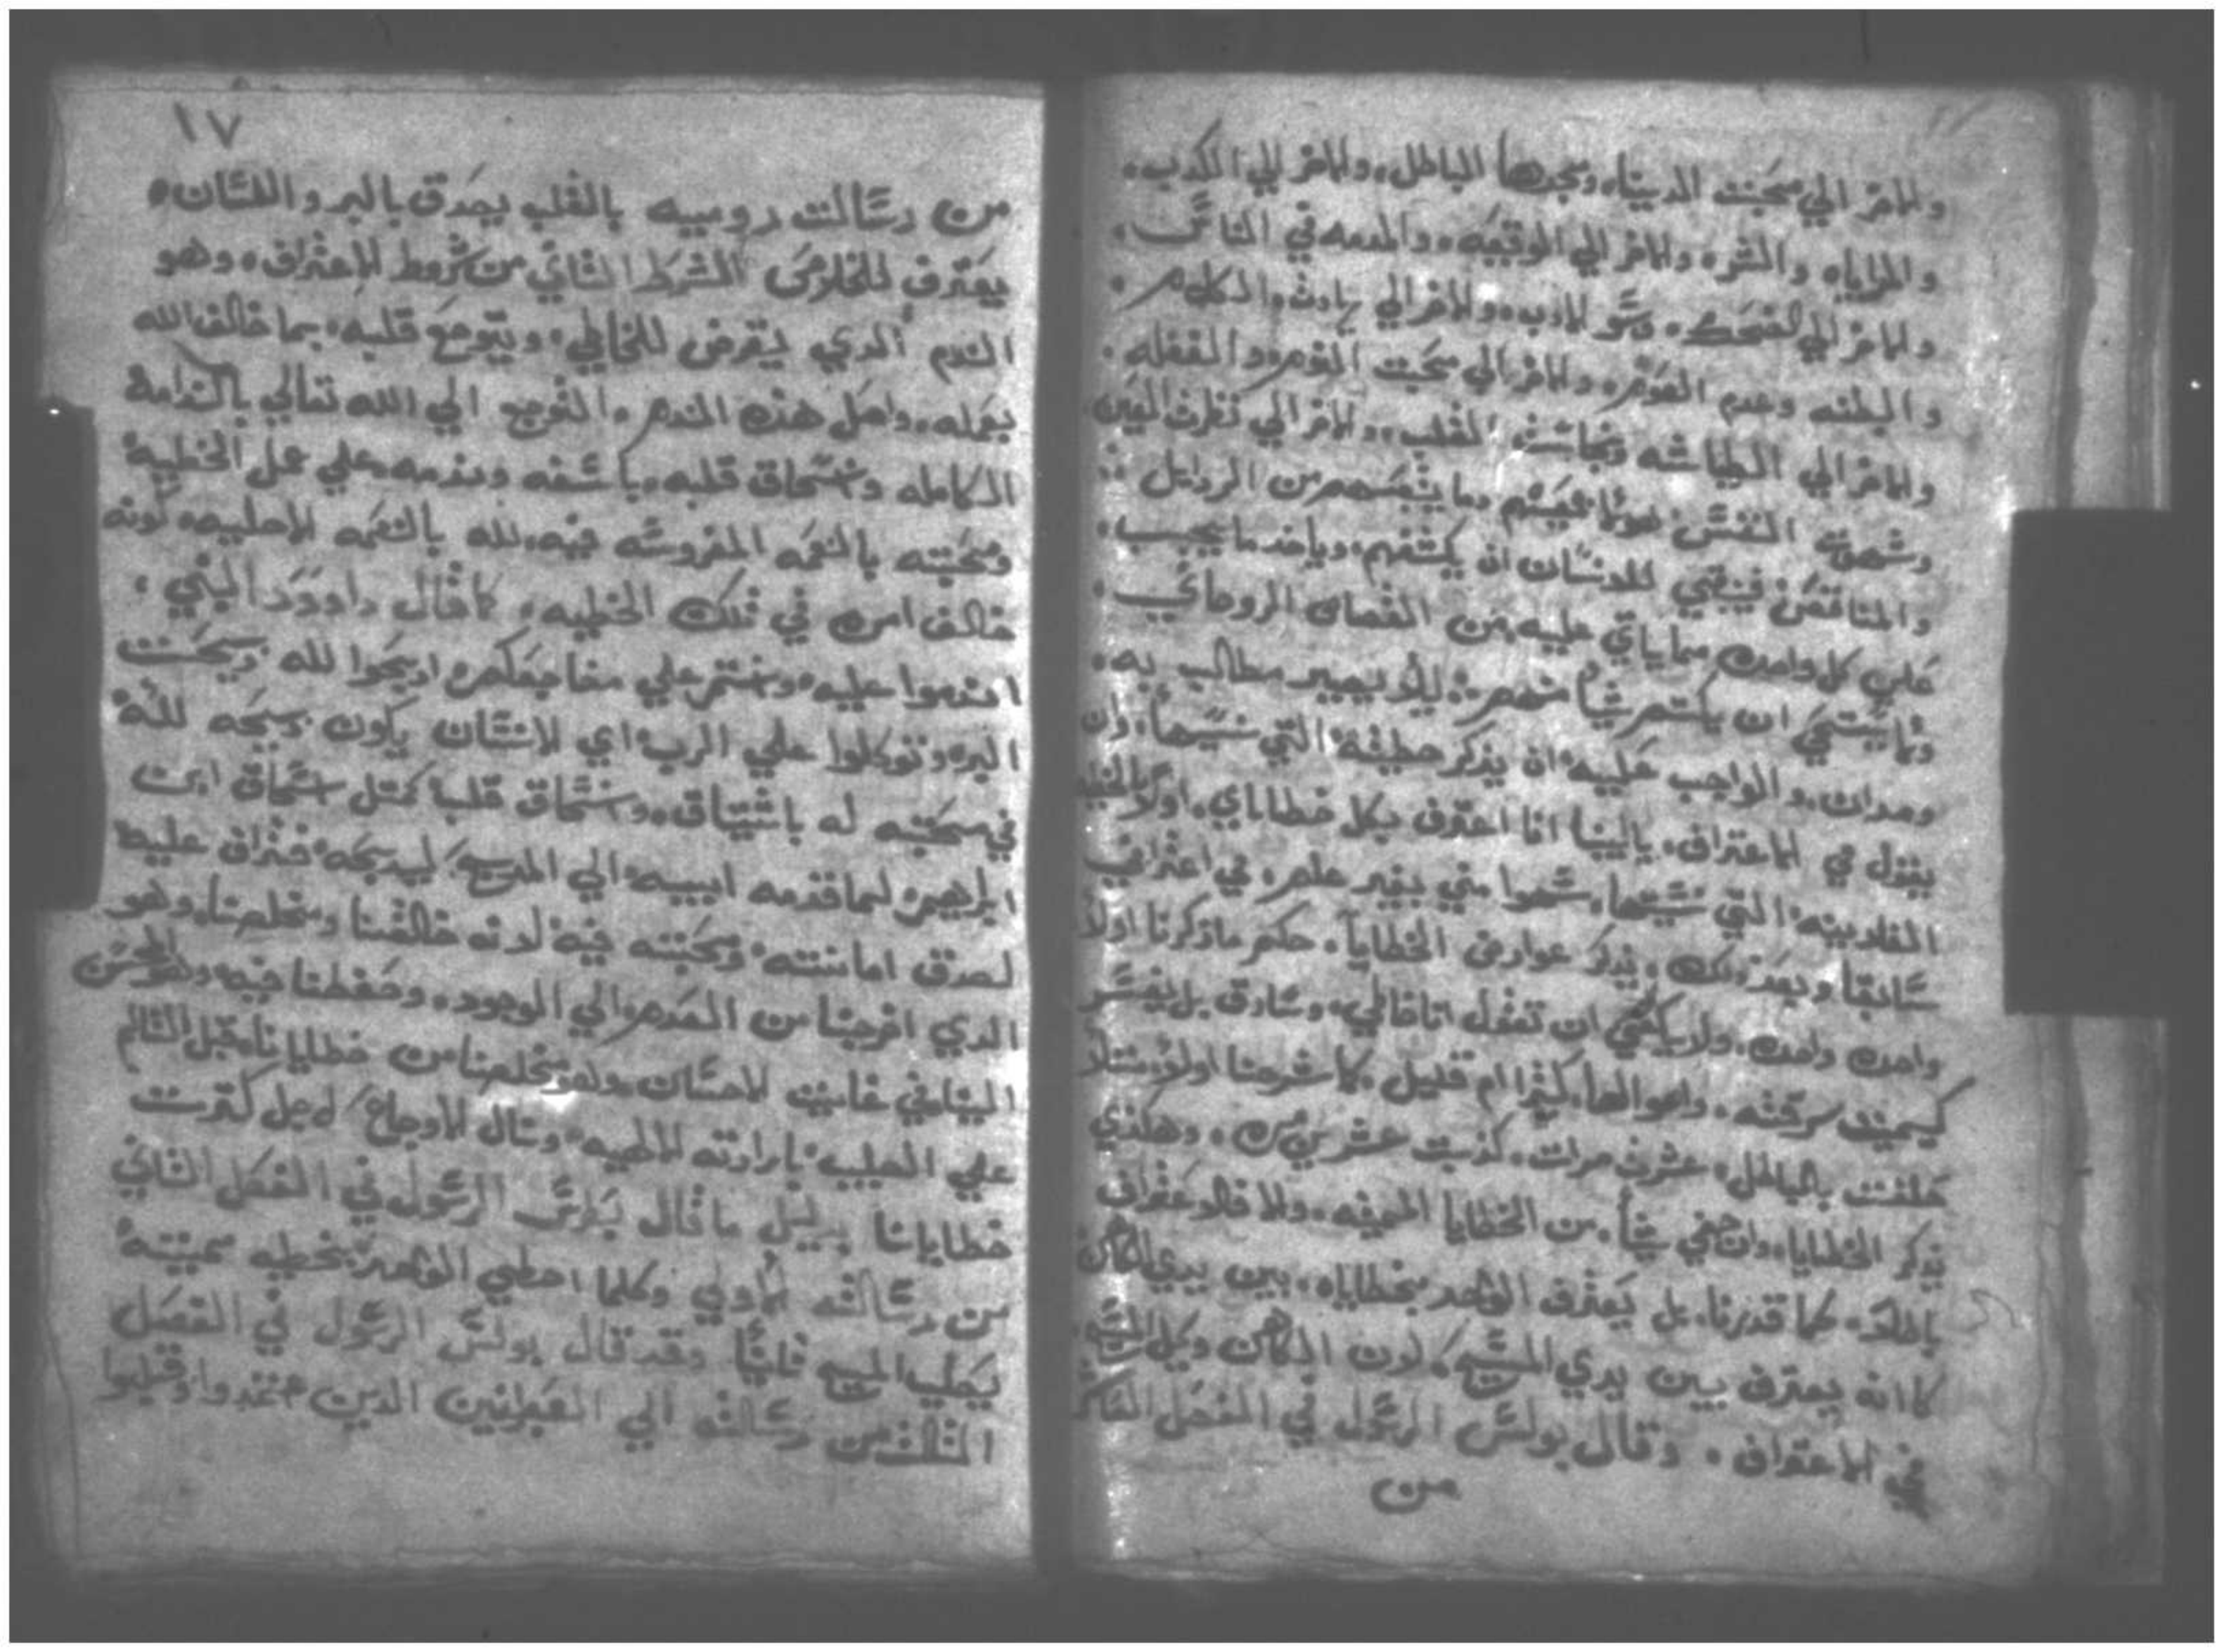 والاخر الي محبت الدنيا، ومجدها الباطل، والاخر الي الكدب،
والرياء والشره والاخر الي الوقيعه، والدمدمه في الناس،
والاخر الي الضحك، وسو الادب، والاخر الي الكلام،
والبطنه وعدم الصوم، والاخر الي محبت النوم والغفله،
والاخر الي الطياشه ونجاست القلب، والاخر الي نظرت العين
وشهوة النفس من الردايل
فينبغي للانسان ان يكشفهم، وياخد ما يجب،
علي كل واحده مما ياتي عليه من القصاص الروحاني،
ولا يستحي ان يكتم شيأ منهم ليلا يصير مطالب به،
ومدان، والواجب عليه ان يذكر خطيته التي نسيها، وان
يقول في الاعتراف، يا ابينا انا اعترف بكل خطاياي،
الفلانيه التي نسيتها، سهوا مني بغير علم، في اعترافي
سابقا وبعد ذلك، يذكر عوارض الخطايا، حكم ما ذكرنا اولا
واحده واحده، ولا يكفي ان تقول انا خاطي، وسارق بل يفسر
كيميت سرقته، واحوالها، كثيرا ام قليل، كما شرحنا اولا، مثلا
حلفت بالباطل، عشرة مرات، كذبت عشرين مره، وهكذي
يذكر الخطايا، وان خفي شيأ، من الخطايا المميته، والا فلا غفران
بل يعترف الواحد بخطاياه، بين يدي الكاهن
كانه يعترف بين يدي المسيح، لان الكاهن وكيل المسيح،
في الاعتراف، وقال بولس الرسول في الفصل العاشر
من
١٧
من رسالت روميه بالقلب يصدق بالبر واللسان،
يعترف للخلاص الشرط الثاني من شروط الاعتراف، وهو
الندم الدي يفرض للخاطي، ويتوجع قلبه، بما خالف الله
بعمله، واصل هذه الندم، التوجع الي الله تعالي بالندامة
الكامله وانسحاق قلبه، باسفه وندمه علي عمل الخطية
ومحبته بالنعمه المغروسه فيه، لله بالنعمه الاصليه، كونه
خالف امره في تلك الخطيه، كما قال داوود النبي،
اندموا عليه، علي مضاجعكم، ادبحوا لله دبيحت
البر، وتوكلوا علي الرب، اي الانسان يكون دبيحه لله
في محبته له باشتياق، وانسحاق قلبا كمتل اسحاق ابن
ابراهيم لما قدمه ابيه الي المدبح، ليدبحه
لصدق امانته، ومحبته فيه لانه خالقنا ومخلصنا، وهو
الدي اخرجنا من العدم، الي الوجود، وحفظنا فيه، وهو المحسن
الينا في غايت الاحسان، وهو مخلصنا من خطايانا، قبل التالم
علي الصليب، بارادته الالهيه، ونال الاوجاع، لاجل كترت
خطايانا بدليل ما قال بطرس الرسول في الفصل الثاني
من رسالته الاولي وكلما اخطي الواحد بخطيه مميته
يصلب المسيح ثانيا وقد قال بولس الرسول في الفصل
الثالث من رسالته الي العبرانيين الدين اعتمدوا وقبلوا